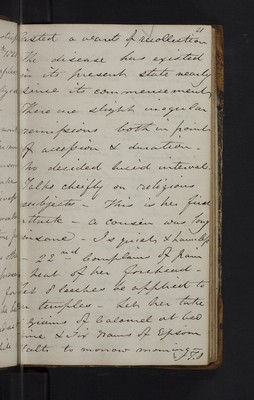 21
a want of recollection
The disease has existed
in its present state nearly
since its commencement
There are slight irregular
remissions both in point
of accession & duration.
No decided lucid interval.
Talks cheifly on religious
subjects - This is her first
attack - a cousin was long
insane - Is quiet & harmless
- 22nd Complains of pain
& heat of her forehead -
Let 8 leeches be applied to
her temples - Let her take
grains of Calomel at bed
time & six drams of Epsom
Salts to morrow morning